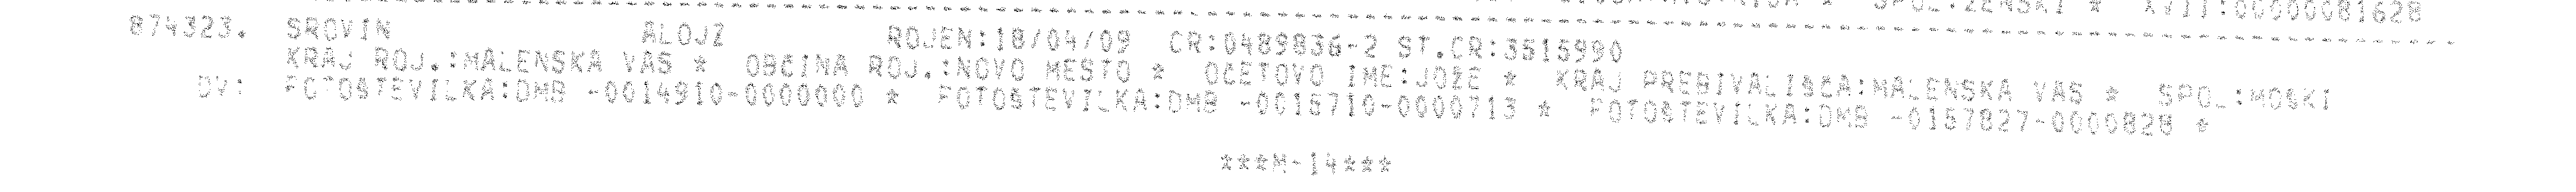 SPOL:ZENSKI * XVII:00000081628
874323. SROVIN ALOJZ ROJEN:18/04/09 CR:0489836-2 ST.CR:3515990
KRAJ ROJ.:MALENSKA VAS * OBČINA ROJ.:NOVO MESTO * OČETOVO IME:JOŽE * KRAJ PREBIVALIŠČA:MALENSKA VAS * SPOL:MOŠKI
DV: FOTOŠTEVILKA:DMB -0014910-0000000 * FOTOŠTEVILKA:DMB -0015710-0000713 * FOTOŠTEVILKA:DMB -0157827-0000828 *
***M-14***